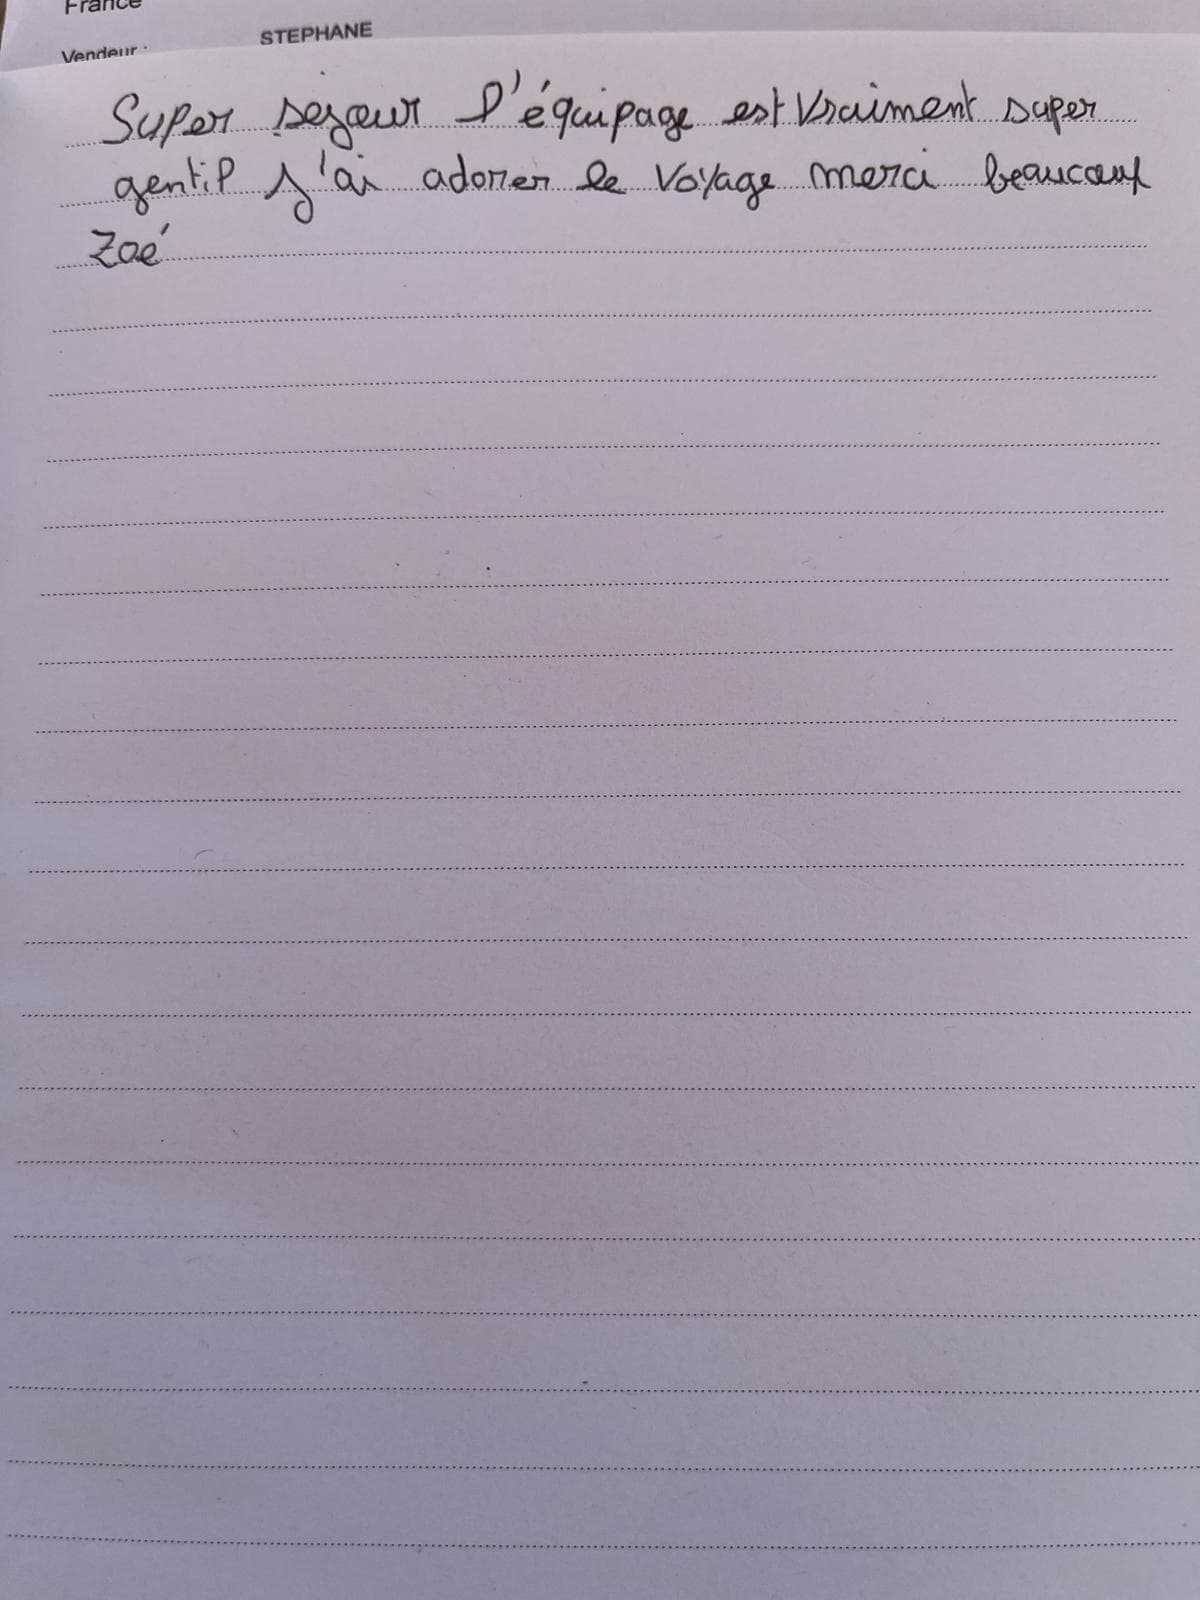 France
Vendeur : STEPHANE
Super sejour l'équipage est vraiment super
gentil j'ai adorer le voyage merci beaucoup
Zoé